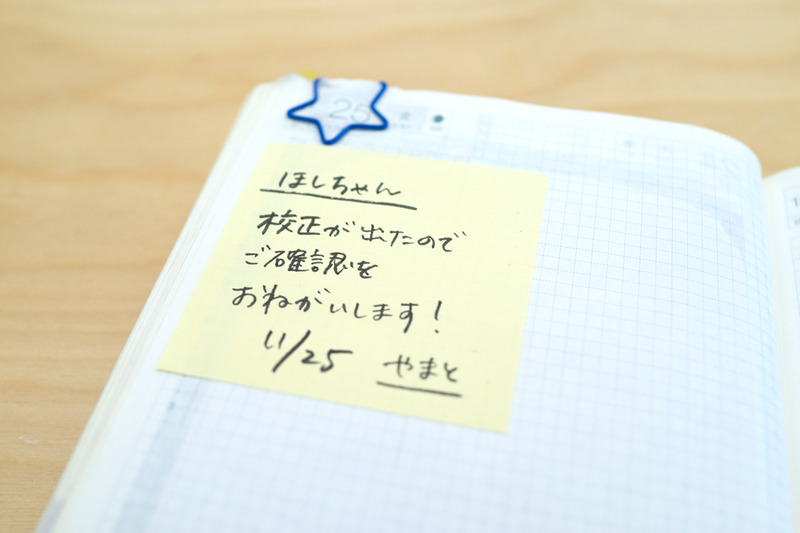 25
ほしちゃん
校正が出たので
ご確認を
おねがいします!
11/25 やまと